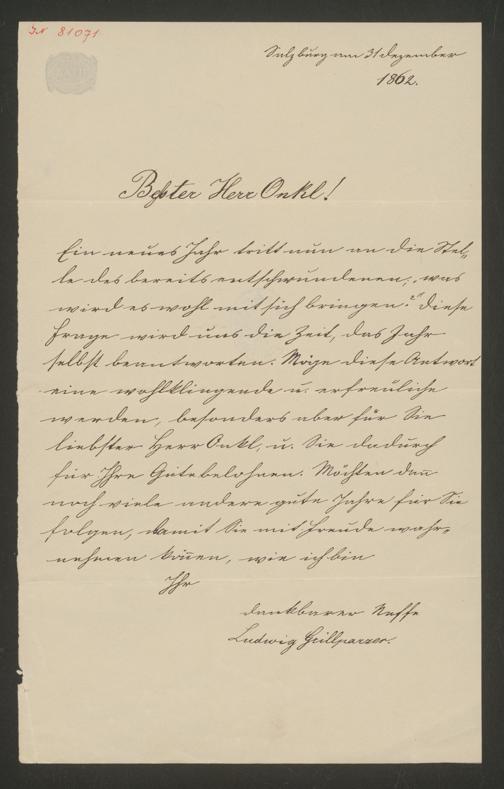 IN 81071
Salzburg am 31 Dezember
1862.
Bester Herr Onkl!
Ein neues Jahr tritt nun an die Stel-
le des bereits entschwundenen; „was
wird es wohl mit sich bringen?" diese
Frage wird uns die Zeit, das Jahr
selbst beantworten. Möge diese Antwort
eine wohlklingende u. erfreuliche
werden, besonders aber für Sie
liebster Herr Onkl, u. Sie dadurch
für Ihre Güte belohnen. Möchten dan̄
noch viele andere gute Jahre für Sie
folgen, damit Sie mit Freude wahr-
nehmen kön̄en, wie ich bin
Ihr
dankbarer Neffe
Ludwig Grillparzer.